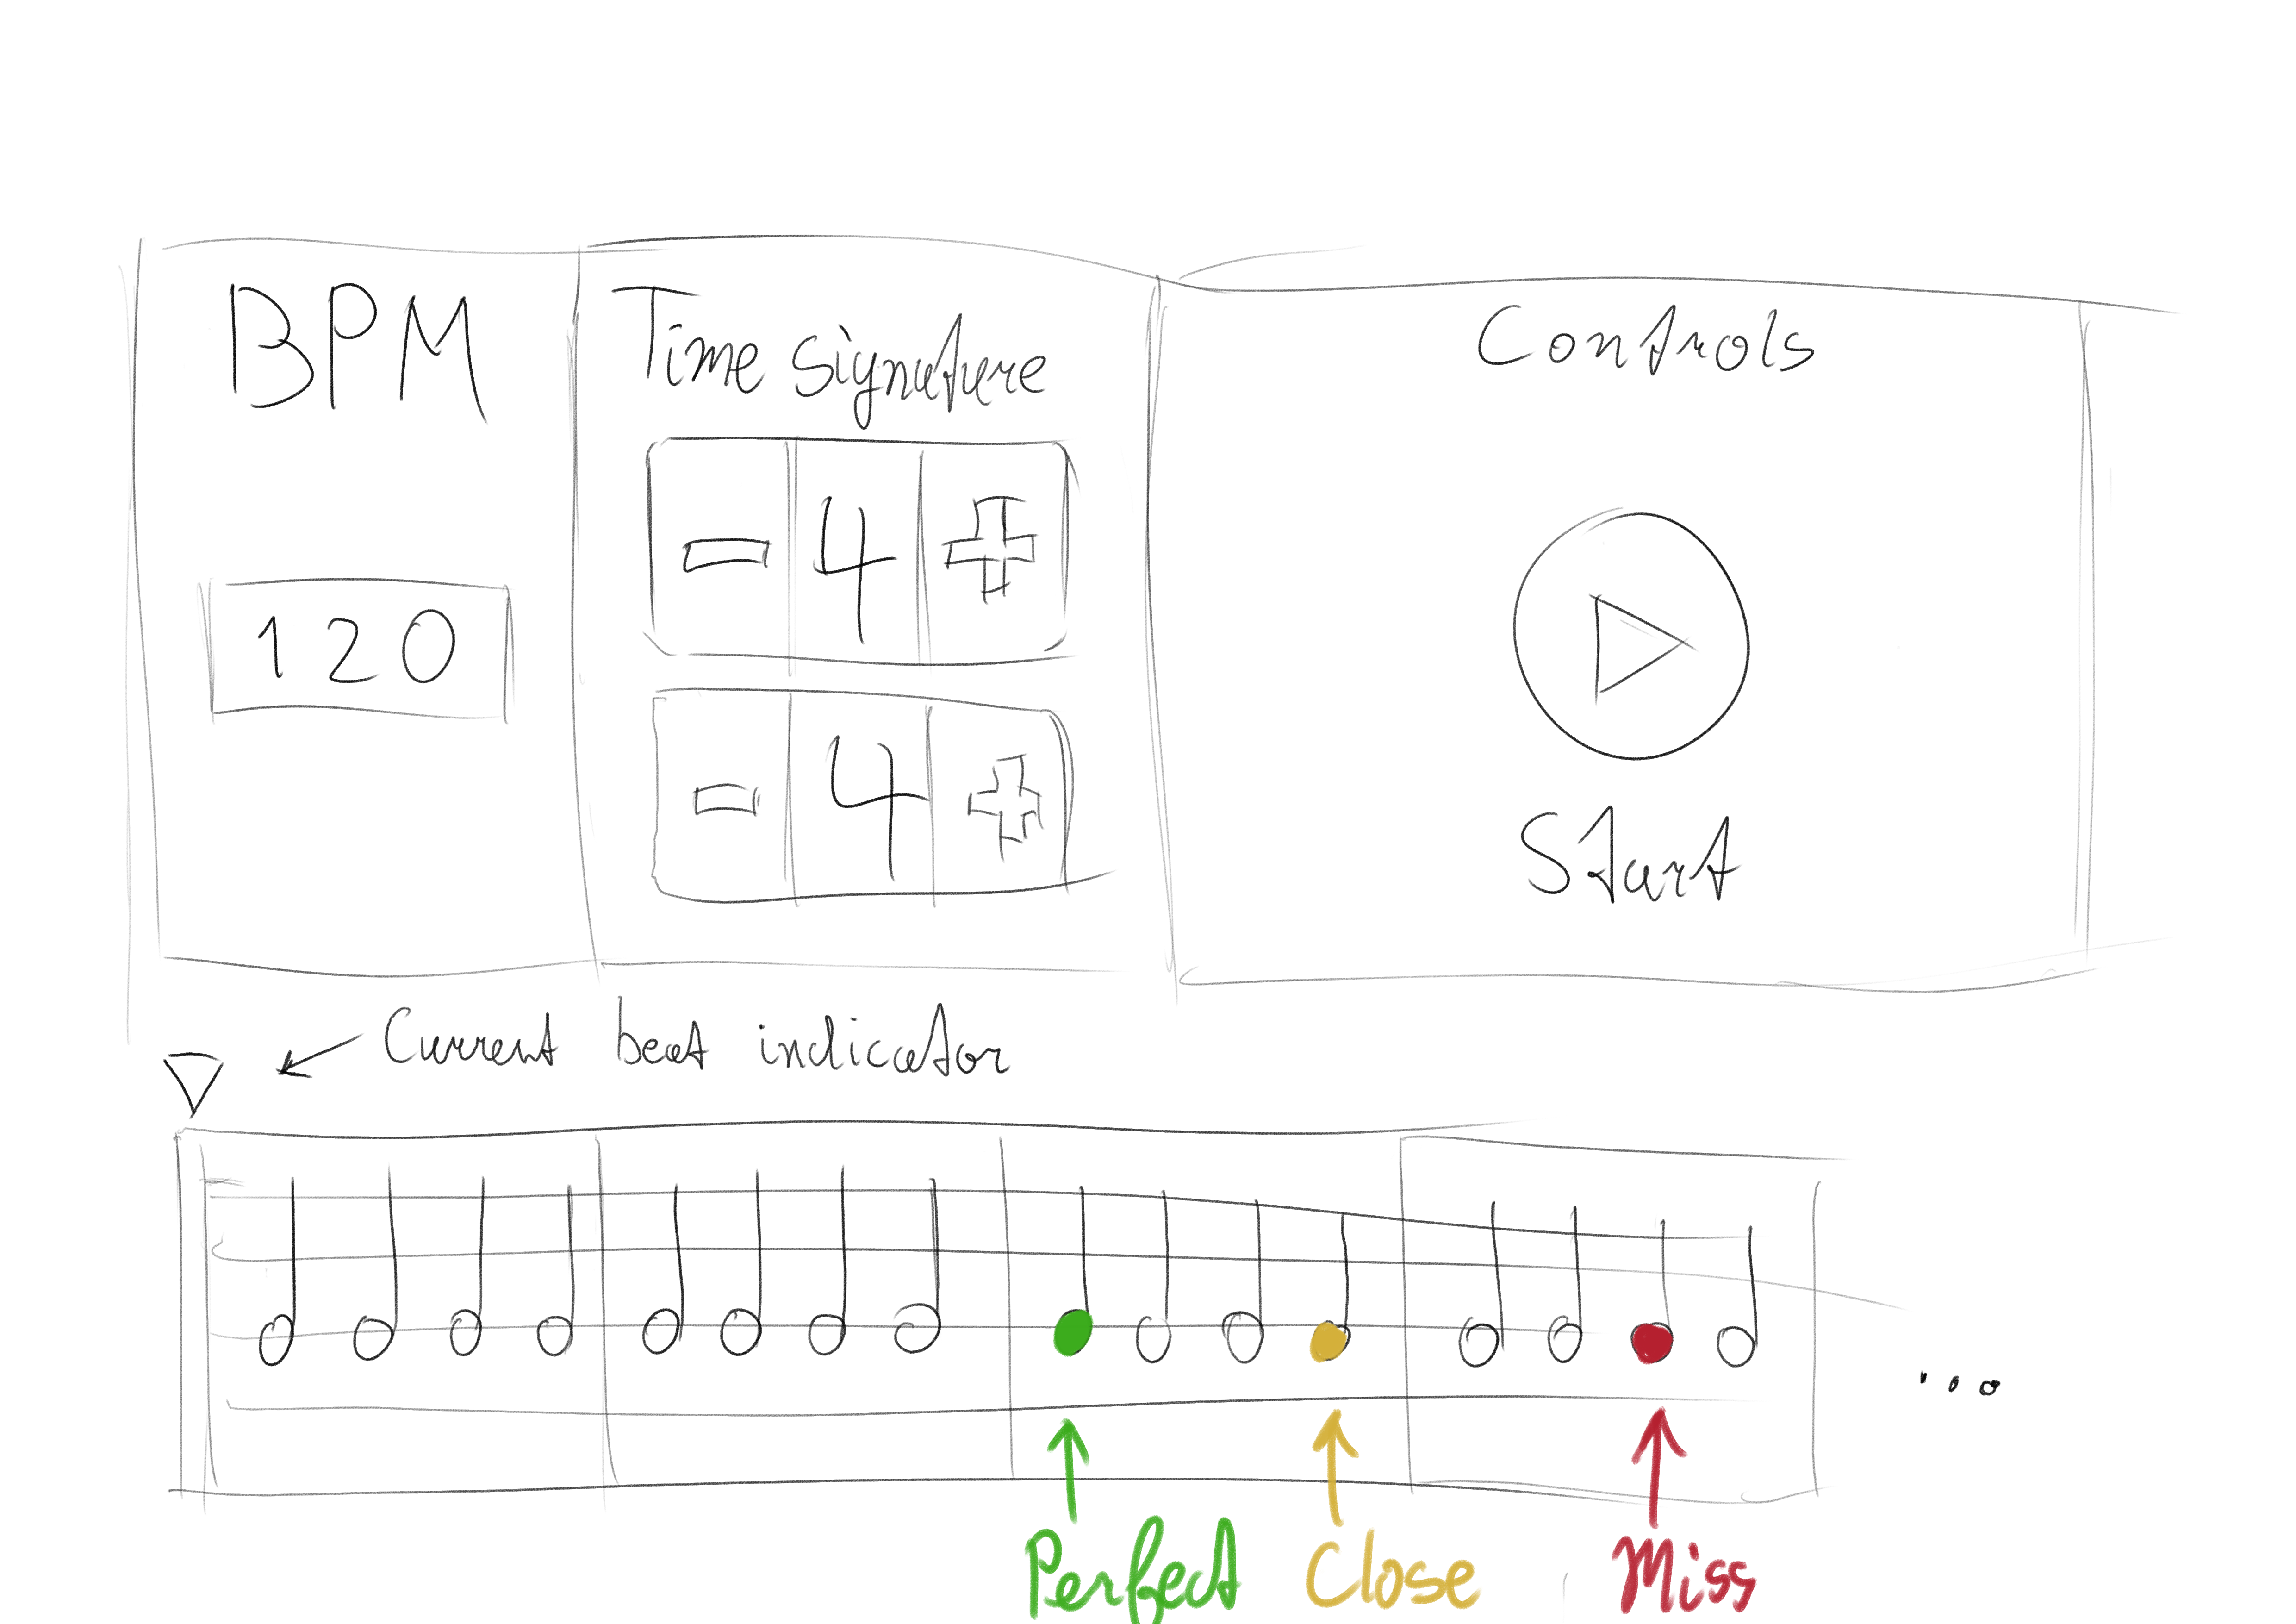 BPM
Time Signature
Controls
4
120
4
Start
Current beat indicator
...
Perfect Close Miss